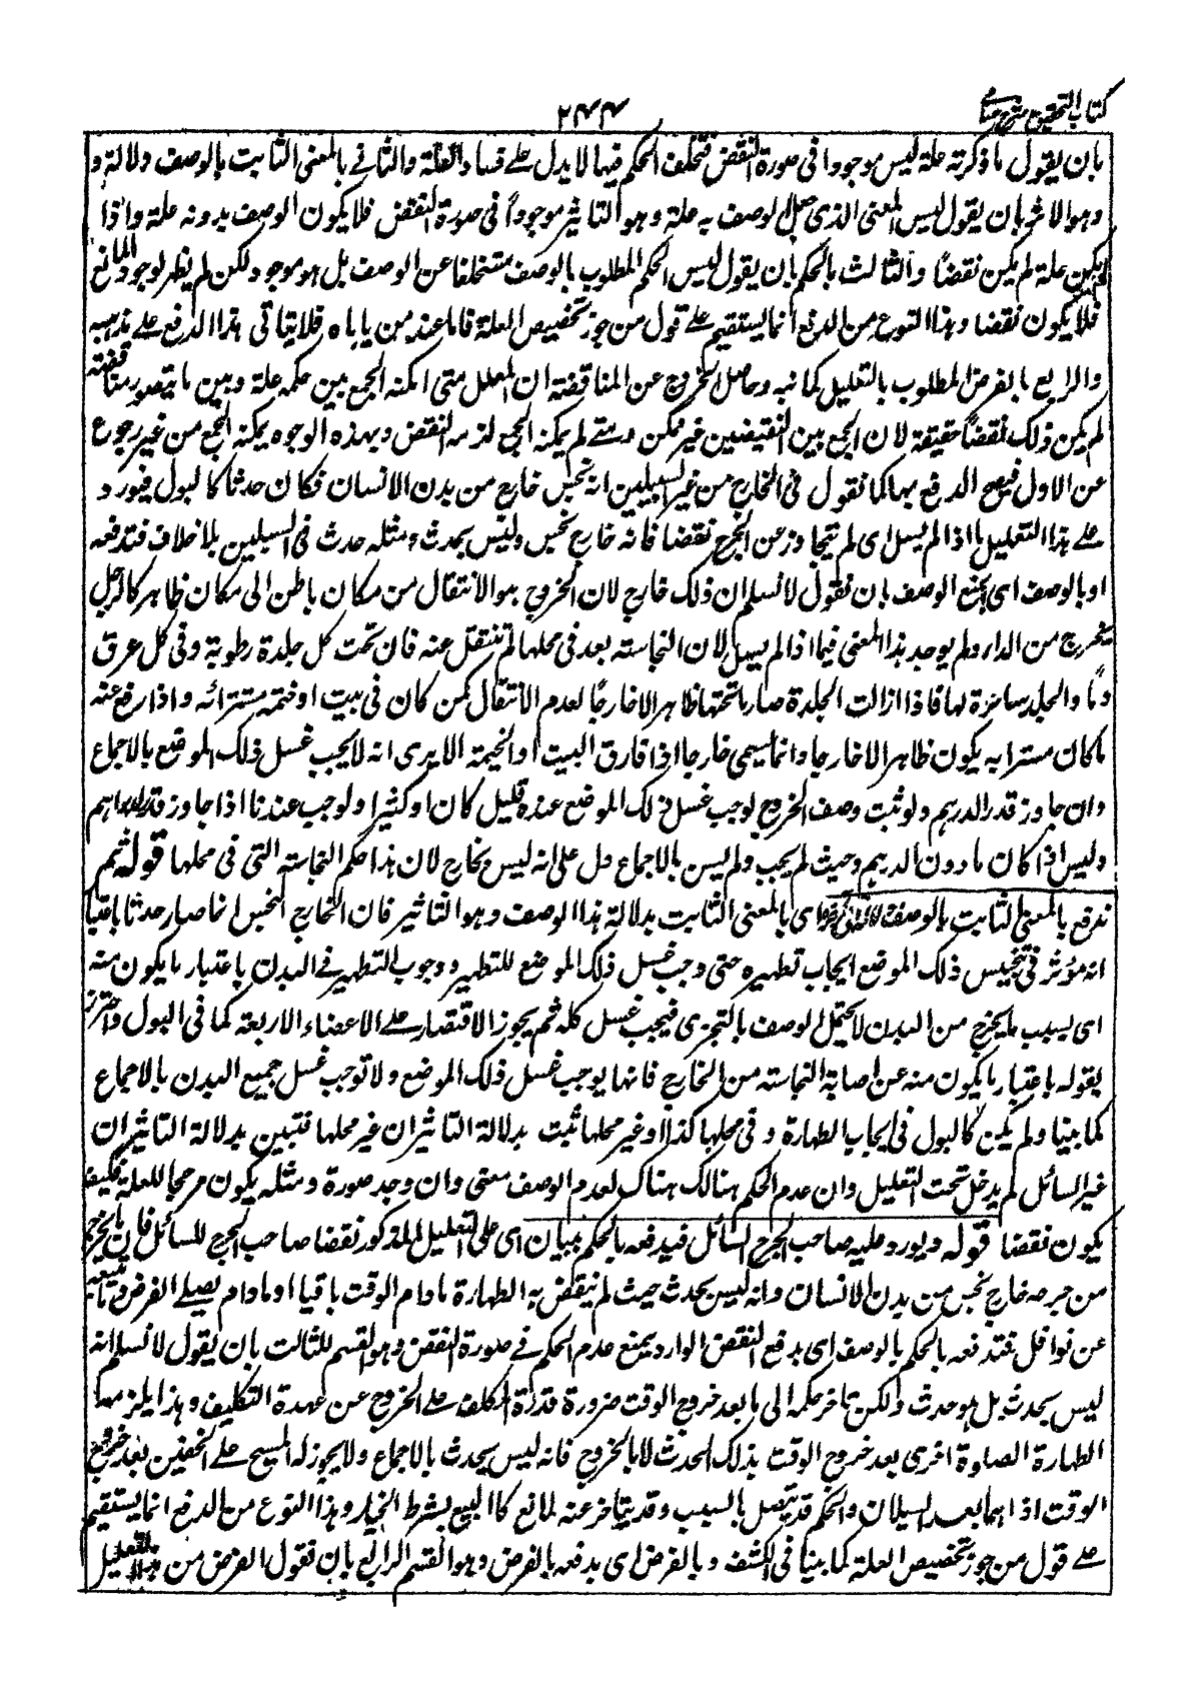 كتاب التحقيق شرح حسامي
٢٤٤
بان يقول ما ذكرته علة ليس موجودا فى صورة النقض فتخلف الحكم فيها لا يدل على فساد العلة والثانى بالمعنى الثابت بالوصف دلالة و
وهو الاثر بان يقول ليس المعنى الذى جعل الوصف به علة وهو التاثير موجوداً فى صورة النقض فلا يكون الوصف بدونه علة واذا
لم يكن علة لم يكن نقضاً والثالث بالحكم بان يقول ليس الحكم المطلوب بالوصف متخلفا عن الوصف بل هو موجود لكن لم يظهر لوجود المانع
فلا يكون نقضا وهذا النوع من الدفع انما يستقيم على قول من جوز تخصيص العلة فاما عند من ياباه فلا يتاتى هذا الدفع على مذهبه
والرابع بالغرض المطلوب بالتعليل كما نبه وحاصل الخروج عن المناقضة ان المعلل متى امكنه الجمع بين حكمه علة وبين ما يتصور مناقضته
لم يكن ذلك نقضاً حقيقة لان الجمع بين النقيضين غير ممكن ومتى لم يمكنه الجمع لزمه النقض وبهذه الوجوه يمكنه الجمع من غير رجوع
عن الاول فيصح الدفع بها كما نقول فى الخارج من غير السبيلين انه نجس خارج من بدن الانسان فكان حدثا كالبول فيورد
على هذا التعليل ما اذا لم يسل اى لم يتجاوز عن الجرح نقضا فانه خارج نجس وليس بحدث ومثله حدث فى السبيلين بلا خلاف فندفعه
اولا بالوصف اى بمنع الوصف بان نقول لا نسلم ان ذلك خارج لان الخروج هو الانتقال من مكان باطن الى مكان ظاهر كالرجل
يخرج من الدار ولم يوجد هذا المعنى فيما اذا لم يسل لان النجاسة بعد فى محلها لم تنتقل عنه فان تحت كل جلدة رطوبة وفى كل عرق
دمًا والجلد ساترة لها فاذا ازالت الجلدة صار ما تحتها ظاهرا لا خارجًا لعدم الانتقال كمن كان فى بيت او خيمة مستترا به واذا رفع عنه
ما كان مستترا به يكون ظاهرا لا خارجا وانما يسمى خارجا اذا فارق البيت او الخيمة الا يرى انه لا يجب غسل ذلك الموضع بالاجماع
وان جاوز قدر الدرهم ولو ثبت وصف الخروج لوجب غسل ذلك الموضع عنده قليل كان او كثيرا ولوجب عندنا اذا جاوز قدر الدراهم
وليس اذا كان ما دون الدرهم وحيث لم يجب ولم يسن بالاجماع دل على انه ليس بخارج لان هذا حكم النجاسة التى فى محلها قوله ثم
ندفع بالمعنى الثابت بالوصف دلالة اى بالمعنى الثابت بدلالة هذا الوصف وهو التاثير فان الخارج النجس انما صار حدثا باعتبار
انه مؤثر فى تنجيس ذلك الموضع ايجاب تطهيره حتى وجب غسل ذلك الموضع للتطهير ووجوب التطهير فى البدن باعتبار ما يكون منه
اى بسبب ما يخرج من البدن لا يحتمل الوصف بالتجزى فيجب غسل كله ثم يجوز الاقتصار على الاعضاء الاربعة كما فى البول واحترز
بقوله باعتبار ما يكون منه عن اصابة النجاسة من الخارج فانها يوجب غسل ذلك الموضع ولا توجب غسل جميع البدن بالاجماع
كما بينا ولم يكن كالبول فى ايجاب الطهارة وفى محلها كذا او غير محلها ثبت بدلالة التاثير ان غير محلها فتبين بدلالة التاثير ان
غير السائل لم يدخل تحت التعليل وان عدم الحكم هنالك هناك لعدم الوصف معنى وان وجد صورة ومثله يكون مرجحا للعلة فكيف
يكون نقضا قوله ويورد عليه صاحب الجرح السائل فيدفعه بالحكم ببيان اى على التعليل المذكور نقضا صاحب الجرح للسائل فان ما يخرج
من جرحه خارج نجس من بدن الانسان وانه ليس بحدث حيث لم ينتقض به الطهارة ما دام الوقت باقيا او ما دام يصلى الفرض وما يتبعه
عن نوافل فندفعه بالحكم بالوصف اى بدفع النقض الوارد بمنع عدم الحكم فى صورة النقض وهو القسم الثالث بان يقول لا نسلم انه
ليس بحدث بل هو حدث ولكن تاخر حكمه الى ما بعد خروج الوقت ضرورة قدرة المكلف على الخروج عن عهدة التكليف ولهذا يلزمها
الطهارة الصلوة اخرى بعد خروج الوقت بذلك الحدث لا بالخروج فانه ليس بحدث بالاجماع ولا يجوز له المسح على الخفين بعد خروج
الوقت اذا لبسهما بعد السيلان والحكم قد يتصل بالسبب وقد يتاخر عنه لمانع كالبيع بشرط الخيار وهذا النوع من الدفع انما يستقيم
على قول من جوز تخصيص العلة كما بينا فى الكشف وبالغرض اى بدفعه بالغرض وهو القسم الرابع بان نقول الغرض من هذا التعليل